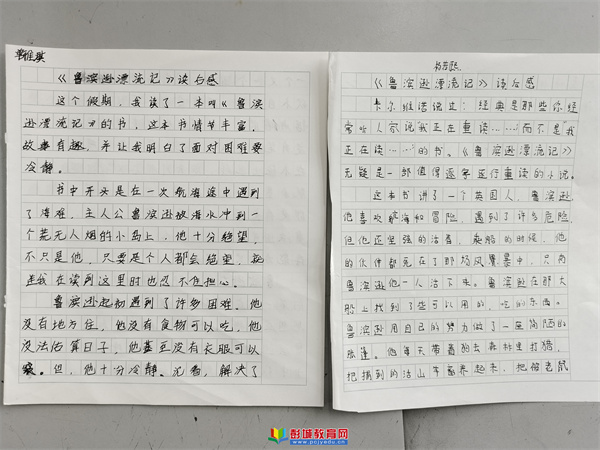 《鲁滨逊漂流记》读后感
这个假期,我读了一本叫《鲁滨
逊漂流记》的书,这本书情节丰富,
故事有趣,并让我明白了面对困难要
冷静。
书中开头是在一次航海途中遇到
了海难,主人公鲁滨逊被海水冲到一
个荒无人烟的小岛上,他十分绝望,
不只是他,只要是个人都会绝望,
连我在读到这里时也忍不住担心。
鲁滨逊起初遇到了许多困难,他
没有地方住,他没有食物可以吃,他
没法估算日子,他甚至没有衣服可以
但,他十分冷静、沉着,解决了
《鲁滨逊漂流记》读后感
卡尔维诺说过:经典是那些你经
常听人家说"我正在重读……"而不是"我
正在读……"的书。《鲁滨逊漂流记》
无疑是一部值得逐字逐行重读的小说。
这本书讲了一个英国人,鲁滨逊,
他喜欢航海和冒险,遇到了许多危险,
但他还坚强的活着,乘船的时候,他
的伙伴都死在了那场风暴中,只有
鲁滨逊他一人活下来。鲁滨逊在那大
船上找到了些可以用的,吃的东西。
鲁滨逊用自己的努力做了一座简陋的
帐篷。他每天带着狗去森林里打猎,
把捕到的活山羊养起来,把像老鼠
彭城教育网
www.pcjyedu.cn